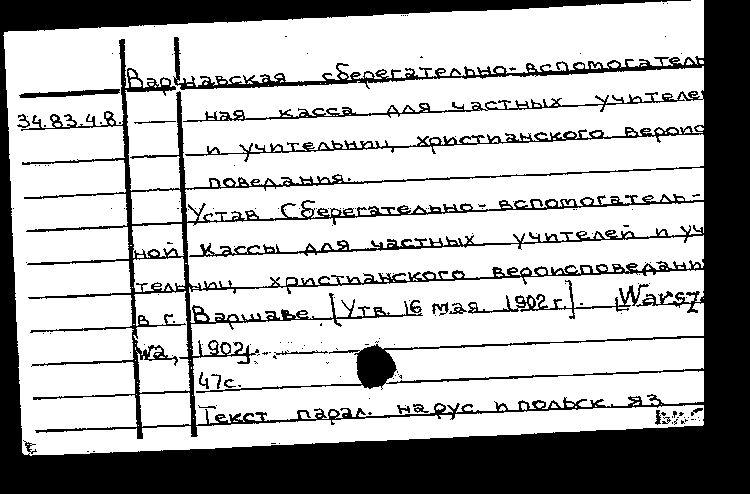 Варшавская сберегательно-вспомогатель
34.83.4.8. ная касса для частных учителе
и учительниц, христианского вероис
поведания.
Устав Сберегательно-вспомогатель-
ной кассы для частных учителей и уч
тельниц, христианского вероисповедани
в г. Варшаве. [Утв. 16 мая. 1902 г.]. [Warsz
wa, 1902].
47с.
Текст парал. на рус. и польск. яз